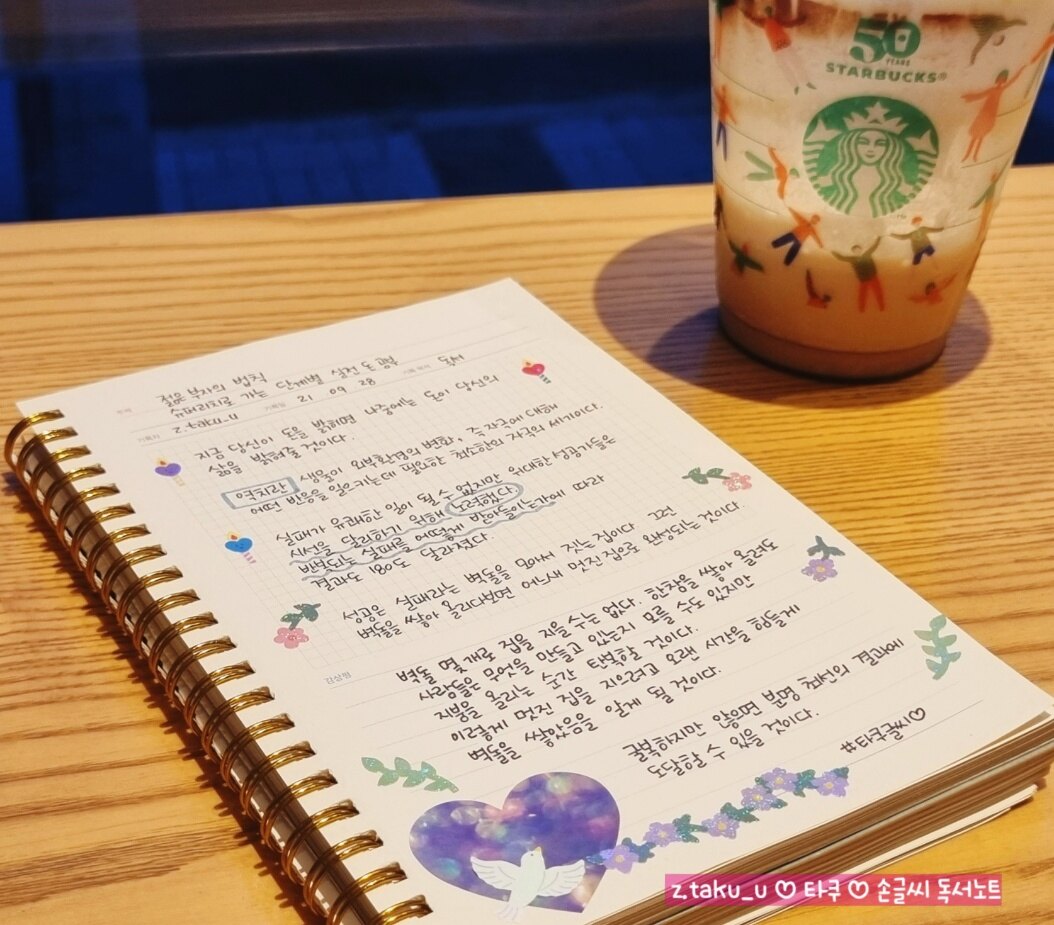 50
YEARS
STARBUCKS®
젊은 부자의 법칙
슈퍼리치로 가는 단계별 실전 돈 공부
z.taku_u 21 09 28 독서
지금 당신이 돈을 밝히면 나중에는 돈이 당신의
삶을 밝혀줄 것이다.
역치란 생물이 외부환경의 변화, 즉 자극에 대해
어떤 반응을 일으키는데 필요한 최소한의 자극의 세기이다.
실패가 유쾌한 일이 될 수 없지만 위대한 성공가들은
시선을 달리하기 위해 노력했다.
반복되는 실패를 어떻게 받아들이는가에 따라
결과도 180도 달라졌다.
성공은 실패라는 벽돌을 모아서 짓는 집이다 그런
벽돌을 쌓아 올리다보면 어느새 멋진 집으로 완성되는 것이다.
감상평
벽돌 몇 개로 집을 지을 수는 없다. 한참을 쌓아 올려도
사람들은 무엇을 만들고 있는지 모를 수도 있지만
지붕을 올리는 순간 탄복할 것이다.
이렇게 멋진 집을 지으려고 오랜 시간을 힘들게
벽돌을 쌓았음을 알게 될 것이다.
굴복하지만 않으면 분명 최선의 결과에
도달할 수 있을 것이다.
#타쿠글씨♡
z.taku_u ♡ 타쿠 ♡ 손글씨 독서노트